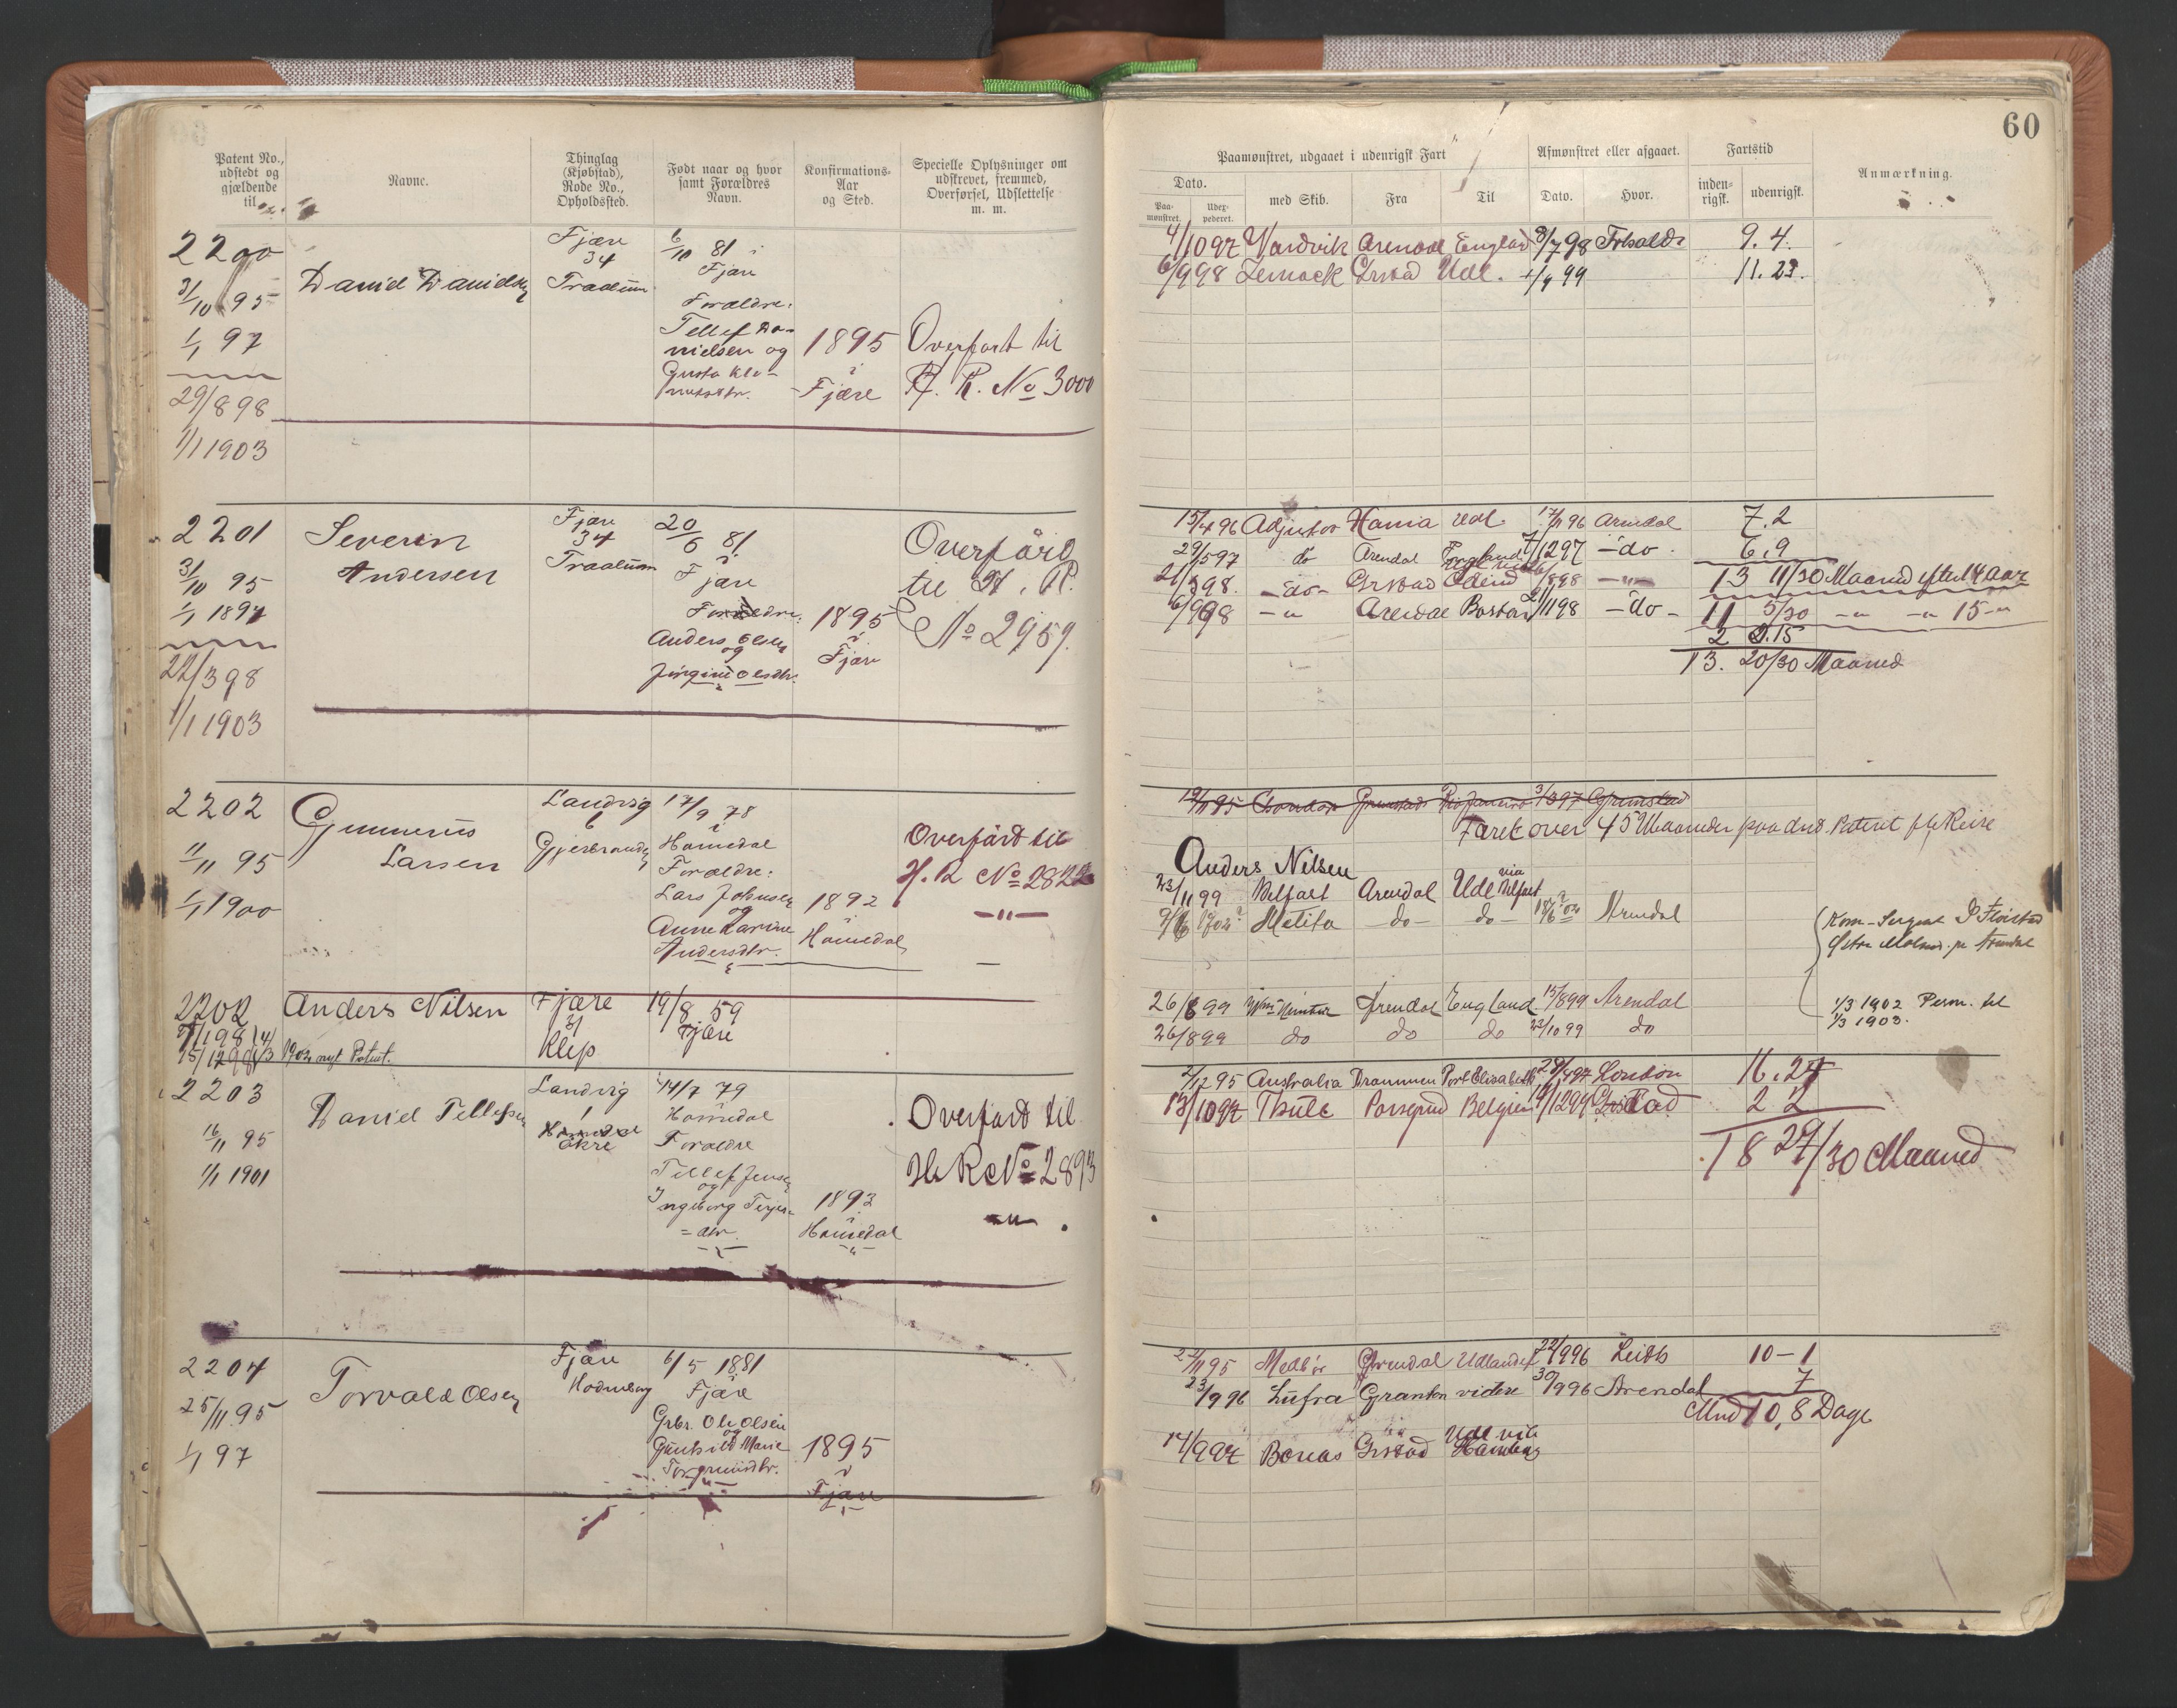 60
Patent No., udstedt og gjældende til
Navne.
Thinglag (Kjøbstad), Rode No., Opholdssted.
Født naar og hvor samt Forældres Navn.
Konfirmations-Aar og Sted.
Specielle Oplysninger om udskrevet, fremmed, Overførsel, Udslettelse m. m.
Paamønstret, udgaaet i udenrigsk Fart
Afmønstret eller afgaaet.
Fartstid
Anmærkning.
Dato.
Paa-mønstret.
med Skib.
Fra
Til
Dato.
Hvor.
inden-rigsk.
udenrigsk.
2200
31/10 95
1/1 97
29/8 98
1/1 1903
Daniel Danielsen
Fjære
34
Traalum
6/10 81
i
Fjære
Forældre:
Tellef Da-
nielsen og
1895
i
Fjære
Overført til
H. R. No 3000
4/10 97 Vardvik Arendal England 8/7 98
9. 4.
6/9 98 Grstad Udl.
11. 23.
2201
31/10 95
1/1 1897
22/3 98
1/1 1903
Severin
Andersen
Fjære
34
Traalum
20/6 81
i
Fjære
Forældre:
Anders Olsen
og
Jørgine Olsdtr.
1895
i
Fjære
Overført
til H. R.
No 2959.
15/4 96 Adjutor Udl. 17/11 96 Arendal 7.2
29/5 97 do Arendal 7/12 97 do 6.9
do Grstad 13 11/30 Maaned efter 14 Aar
6/9 98 " Arendal Boston 2/11 98 do 11 5/30 " " 15 "
2 2.15
13. 20/30 Maaned
2202
11/11 95
1/1 1900
Gunnerius
Larsen
Landvig
6
17/9 78
i
Homedal
Forældre:
Lars Johnsen
og
Anne Karine
Andersdtr.
1892
i
Homedal
Overført til
H. R No 2822
— " —
19/11 95 Condor Grimstad Rio Janeiro 3/3 97 Grimstad
Faret over 45 Maaneder paa
Anders Nilsen
23/11 99 Belfast Arendal Udl via Belfast
Melita do do Arendal
2202
Anders Nilsen
Fjære
31
Klep
19/8 59
Fjære
1902 nyt Patent.
26/6 99 Arendal England 15/8 99 Arendal
26/8 99 do do do 23/10 99 do
1/3 1902 Perm. til
1/3 1903.
2203
16/11 95
1/1 1901
Daniel Tellefsen
Landvig
1
Homedal
Økre
14/7 79
i
Homedal
Forældre
Tellef Jensen
og
Ingeborg Terjes-
= dtr.
1893
i
Homedal
Overført til
H R No 2893
— " —
2/12 95 Australia Drammen Port Elisabeth 28/4 97 London 16.27
13/10 97 Thule Porsgrund Belgien Grstad 2 2
18 29/30 Maaned
2204
25/11 95
1/1 97
Torvald Olsen
Fjære
6/5 1881
i
Fjære
Gbr. Ole Olsen
og
Gunhild Marie
1895
i
Fjære
22/11 95 Medbør Arendal Udlandet 22/9 96 Leith 10 – 1
23/9 96 Lufra Granton videre 30/9 96 Arendal 7
Mnd 10, 8 Dage
14/9 97 Bonas Grstad Udl via
Hamburg